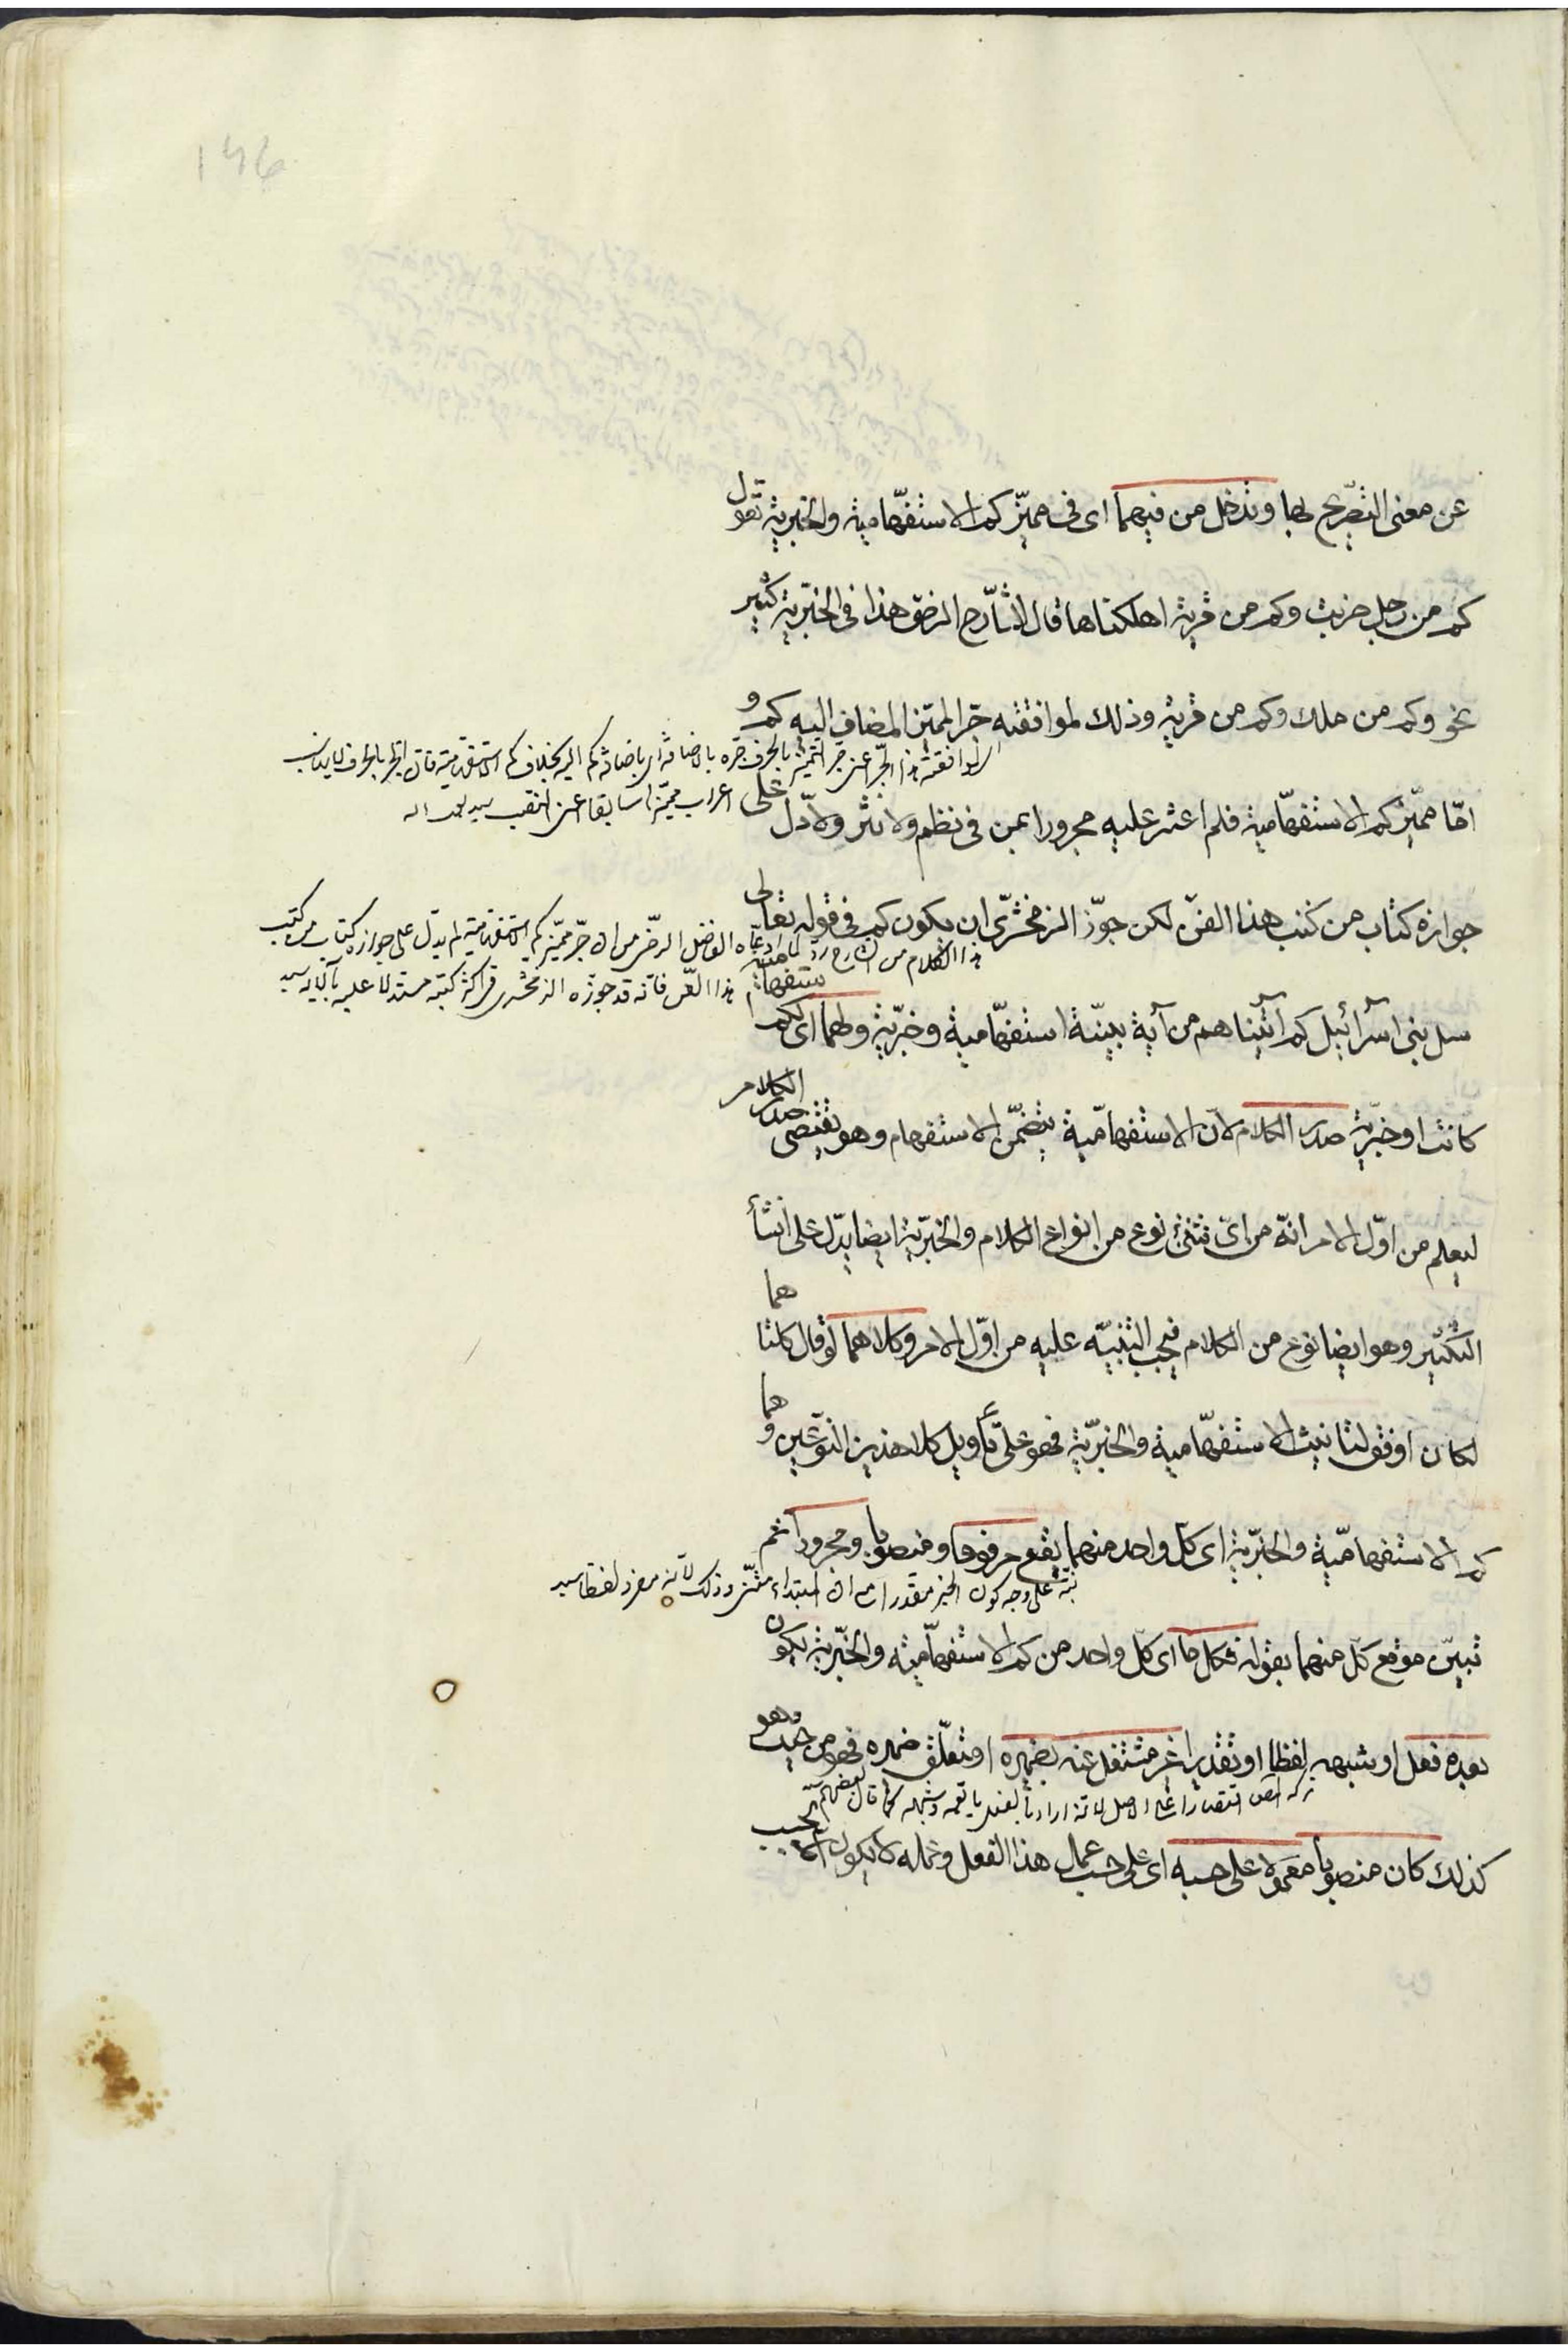 146
عن معنى التصريح بها وتدخل من فيهما اى فى مميّز كم الاستفهامية والخبرية تقول
كم من رجل ضربت وكم من قرية اهلكناها قال الشارح الرضى هذا فى الخبرية كثير
نحو وكم من ملك وكم من قرية وذلك لموافقته جرا للميّز المضاف اليه كم و
اى لموافقته هذا الجر اعنى جر التميز بالحرف جره بالاضافة اى باضافة كم اليه بخلاف كم الاستفهامية فان الجر بالحرف لا يناسب
اعراب مميّزها سابقا اعنى النصب
امّا مميّز كم الاستفهامية فلم اعثر عليه مجرورا بمن فى نظم ولا نثر ولا دلّ على
جوازه كتاب من كتب هذا الفنّ لكن جوّز الزمخشرى ان يكون كم فى قوله تعالى
هذا الكلام من الشارح ردّ لما ادعاه الفاضل الرضى من ان جرّ مميّز كم الاستفهامية لم يدل على جوازه كتاب من كتب
هذا الفن فانه قد جوزه الزمخشرى فى اكثر كتبه مستدلا عليه بالآية سيد
سل بنى اسرآئيل كم آتيناهم من آية بينة استفهامية وخبرية ولهما اى لكم استفهامية
كانت او خبرية صدر الكلام لان الاستفهامية يتضمّن الاستفهام وهو يقتضى صدر الكلام
ليعلم من اوّل الامر انه من اىّ نوع من انواع الكلام والخبرية ايضا يدلّ على انشأ
التكثير وهو ايضا نوع من الكلام فيجب التنبيه عليه من اوّل الامر وكلاهما لو قال كلتاهما
لكان اوفق لتانيث الاستفهامية والخبرية فهو على تأويل كلا هذين النوعين وهما
كم الاستفهامية والخبرية اى كلّ واحد منهما يقع مرفوعا ومنصوبا ومجرورا ثم
نبّه على وجه كون الخبر مفردا مع ان المبتداء مثنى وذلك لانه مفرد لفظا سيد
تبيّن موقع كلّ منهما بقوله فكل ما اى كلّ واحد من كم الاستفهامية والخبرية يكون
بعده فعل او شبهه لفظا او تقديرا غير مشتغل عنه بضميره او متعلّق ضميره فهو من حيث هو
كذلك كان منصوبا معمولا على حسبه اى على حسب عمل هذا الفعل وعمله لا يكون الا بحسب